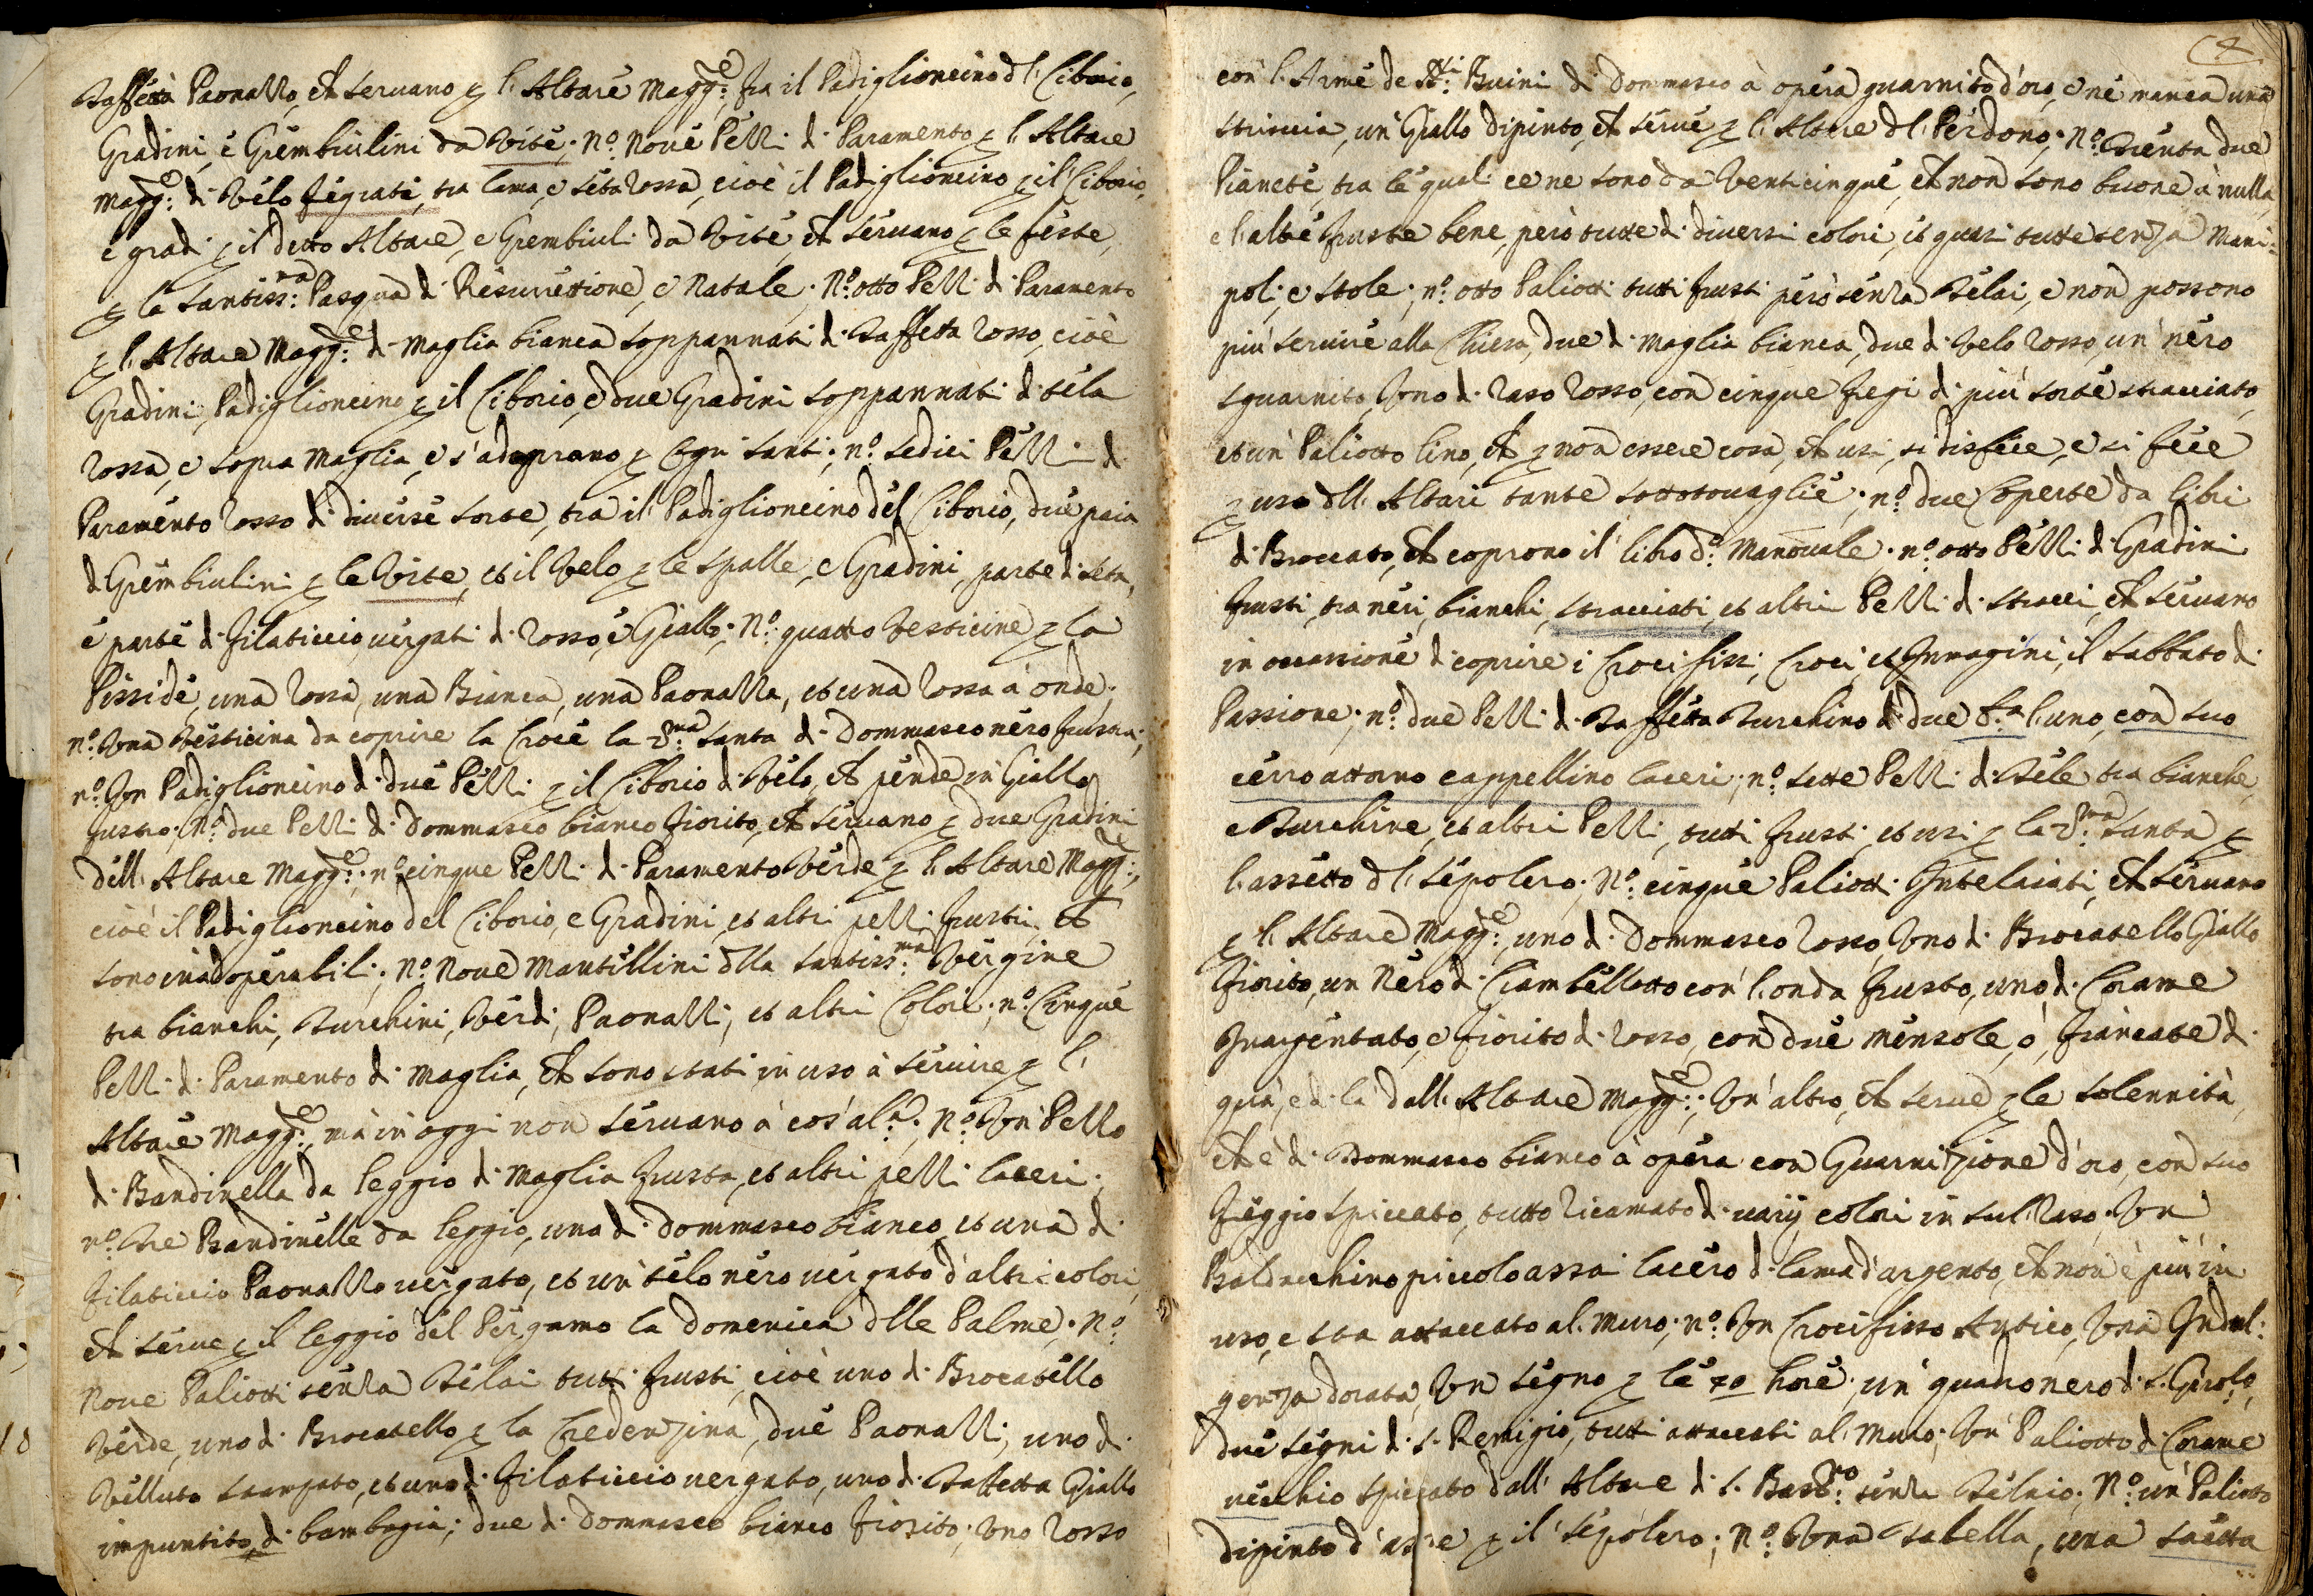 Taffettà Paonazzo, ch servano p l'Altare Magg.e fra il Padiglioncino dl Ciborio,
Gradini, è Grembiulini da Vite; N.o Nove Pezzi di Paramento p l'Altare
Magg.e di Velo fregiati, tra lama, e seta rossa, cioè il Padiglioncino p il Ciborio,
e gradi p il detto Altare, e Grembiuli da Vite, ch servano p le feste,
p la Santiss.ma Pasqua di Resurrettione, e Natale. N.o otto Pezzi di Paramento
p l'Altare Magg.e di Maglia bianca soppannati di Taffetta rosso, cioè
Gradini, Padiglioncino p il Ciborio, e due Gradini soppannati di tela
rossa, e sopra Maglia, e s'adoprano p Ogni Santi; n.o sedici Pezzi di
Paramento rosso di diverse sorte, tra il Padiglioncino del Ciborio, due paia
di Grembiulini p le Vite, et il Velo p le spalle, e Gradini, parte di seta,
è parte di filaticcio vergati di rosso, è Giallo; N.o quatto Vesticine p la
Pisside, una rossa, una Bianca, una Paonazza, et una rossa à onde;
n.o Una Vesticina da coprire la Croce la 7.ma Santa di Dommasco nero frusta;
n.o Un Padiglioncino di due Pezzi p il Ciborio di Velo, ch pende in Giallo
frusto; N.o due Pezzi di Dommasco bianco fiorito, ch servano p due Gradini
dell'Altare Magg.e; n.o cinque Pezzi di Paramento Verde p l'Altare Magg.e,
cioè il Padiglioncino del Ciborio, e Gradini, et altri pezzi frusti, ch
sono inadoperabili; N.o Nove Mantellini dlla Santiss.ma Vergine
tra bianchi, Turchini, Verdi, Paonazzi, et altri Colori; n.o Cinque
Pezzi di Paramento di Maglia, ch sono stati in uso à servire p l'
Altare Magg.e, mà in oggi non servano à cos'al.a; N.o Un Pezzo
di Bandinella da leggio di Maglia frusta, et altri pezzi laceri;
n.o Tre Bandinelle da leggio, una di Dommasco bianco, et una di
filaticcio Paonazzo vergato, et un telo nero vergato d'altri colori,
ch serve p il leggio del Pergamo la Domenica dlle Palme; N.o
Nove Paliotti senza Telai tutti frusti, cioè uno di Brocatello
Verde, uno di Brocatello p la Credenzina, due Paonazzi, uno di
Velluto stampato, et uno di filaticcio vergato, uno di Taffetta Giallo
impuntito di bambagia; due di Dommasco bianco fiorito; uno rosso
con l'Arme de SS.ri Buini di Dommasco à opera guarnito d'oro, e ne manca una
striscia, un Giallo dipinto, ch serve p l'Altare dl Perdono; N.o Trenta due
Pianete, tra le quali ce ne sono da Venticinque, ch non sono buone à nulla,
e l'altre fruste bene, però tutte di diversi colori, et quasi tutte senza Mani:
poli, e Stole; n.o otto Paliotti tutti frusti però senza Telai, e non possono
più servire alla Chiesa, due di Maglia bianca, due di Velo rosso, un nero
sguarnito, Uno di raso rosso, con cinque fregi di più sorte stracciato,
et un Paliotto lino, ch p non essere cosa, ch usi, si disfece, e si fece
p uso dlli Altari tante sottotovaglie; n.o due Coperte da libri
di Broccato, ch coprono il libro d.o Manovale; n.o otto Pezzi di Gradini
frusti, tra neri, bianchi, stracciati, et altri Pezzi di stracci, ch servano
in occassione di coprire i Crocifissi, Croci, et Immagini, il sabbato di
Passione; n.o due Pezzi di Taffetta Turchino di due b.a l'uno, con suo
cerro attorno cappellino laceri; n.o sette Pezzi di Tele tra bianche,
e Turchine, et altri Pezzi, tutti frusti, et usi p la 7.ma Santa p
l'assetto dl Sepolcro; N.o cinque Paliotti Intelaiati, ch servano
p l'Altare Magg.e, uno di Dommasco rosso, Uno di Brocatello Giallo
fiorito, un Nero di Ciambellotto con l'onda frusto, uno di Corame
Inargentato, e fiorito di rosso, con due mensole, ò, fiancate di
quà, e di là dall'Altare Magg.e; Un altro, ch serve p le solennità,
ch è di Dommasco bianco à opera con Guarnizione d'oro, con suo
freggio spiccato, tutto ricamato di varij colori in sul raso. Un
Baldacchino piccolo assai lacero di lama d'argento, ch non è più in
uso, e sta attaccato al muro; n.o Un Crocifisso Antico, Una Indul:
genza dorata, Un segno p le 40 hore; un quadro nero di S. Girol.o,
due segni di S. Remigio, tutti attaccati al Muro; Un Paliotto di Corame
vecchio spiccato dall'Altare di S. Bast.no senza Telaio; N.o un Paliotto
dipinto d'asse p il Sepolcro; N.o Una Tabella, una saetta